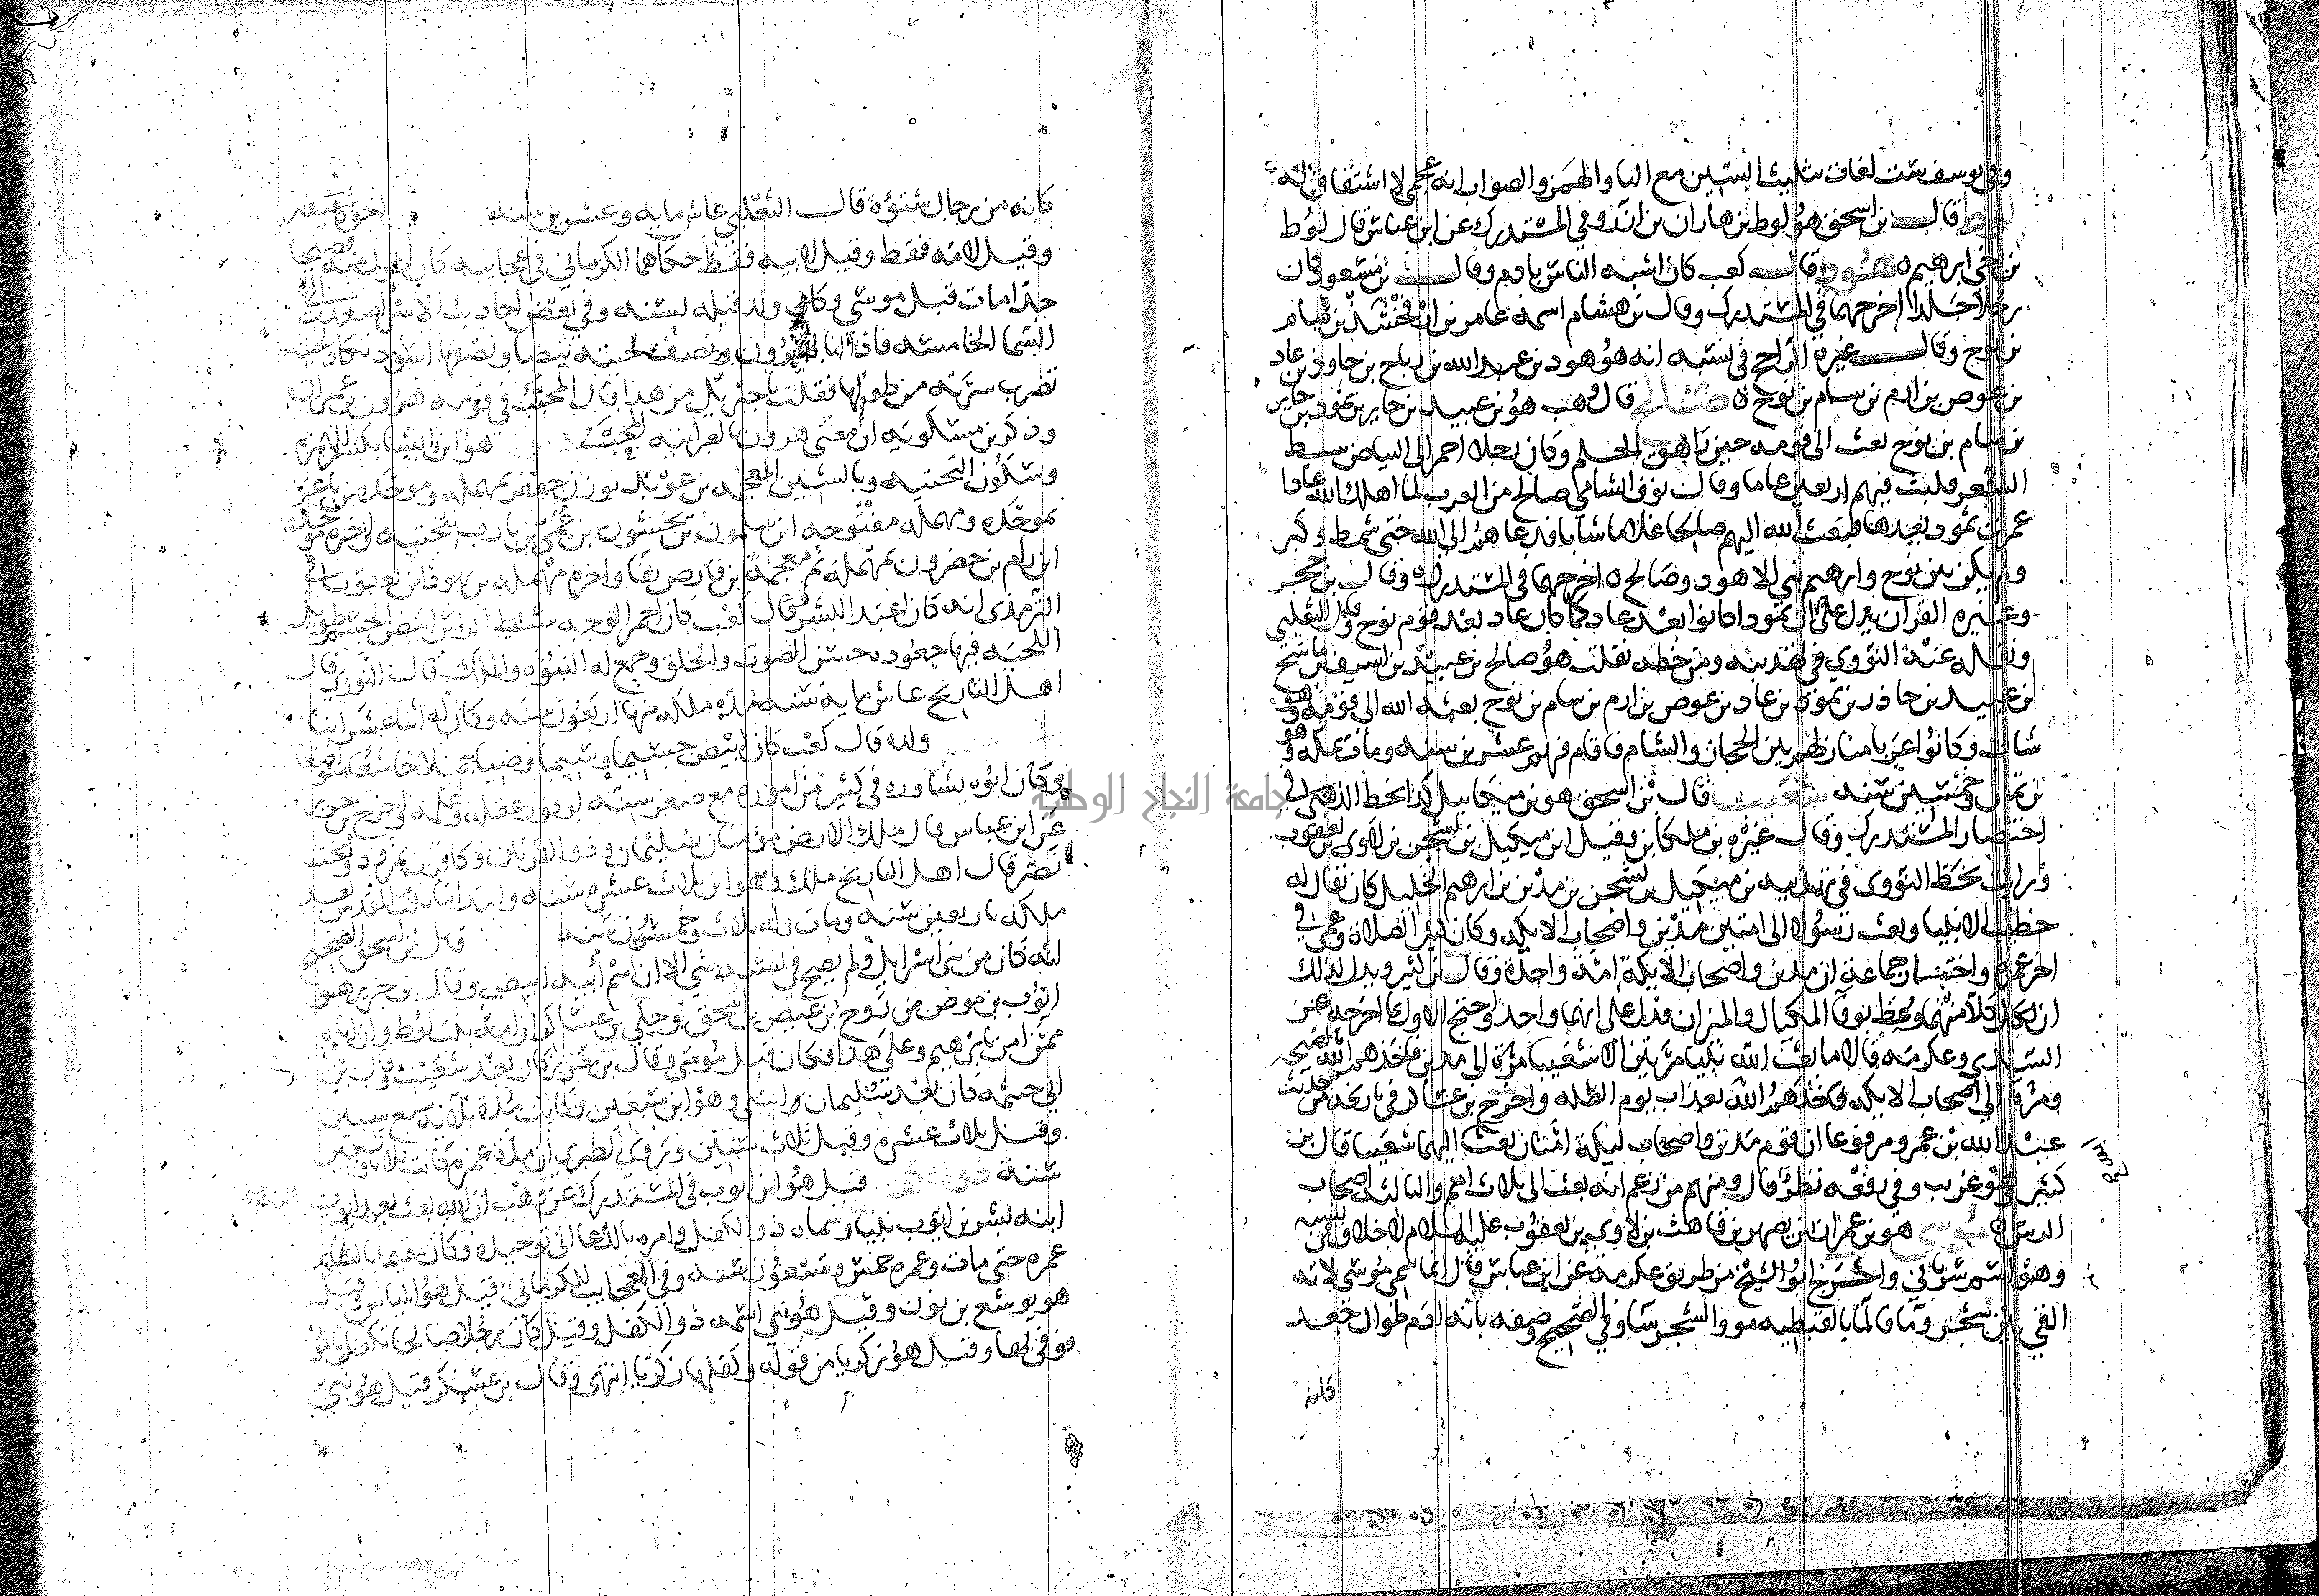 وفي يوسف ست لغات بتثليث السين مع اليا والهمز والصواب انه عجمي لا اشتقاق له
لوط قال بن اسحق هو لوط بن هاران بن ازر وفي المستدرك عن ابن عباس قال لوط
بن اخي ابرهيم ه هود قال كعب كان اشبه الناس بادم وقال بن مسعود كان
رجلا جلدا اخرجهما في المستدرك وقال بن هشام اسمه عابر بن ارفخشد بن سام
بن نوح وقال غيره الراجح في نسبه انه هو هود بن عبد الله بن رباح بن حاوز بن عاد
بن عوص بن ارم بن سام بن نوح ه صالح قال وهب هو بن عبيد بن حاير بن ثمود بن حاير
بن سام بن نوح بعث الى قومه حين راهق الحلم وكان رجلا احمر الى البياض سبط
الشعر فلبث فيهم اربعين عاما وقال نوف الشامي صالح من العرب لما اهلك الله عادا
عمرت ثمود بعدها فبعث الله اليهم صالحا غلاما شابا فدعاهم الى الله حتى شمط وكبر
ولم يكن بين نوح وابرهيم نبي الا هود وصالح ه اخرجهما في المستدرك وقال بن حجر
وغيره القران يدل على ان ثمودا كانوا بعد عاد كما كان عاد بعد قوم نوح وقال الثعلبي
ونقله عنه النووي في تهذيبه ومن خطه نقلت هو صالح بن عبيد بن اسيف بن ماشح
بن عبيد بن حاذر بن ثمود بن عاد بن عوص بن ارم بن سام بن نوح بعثه الله الى قومه وهو
شاب وكانوا عربا منازلهم بين الحجاز والشام فاقام فيهم عشرين سنه ومات بمكه وهو
بن ثمان وخمسين سنه شعيب قال بن اسحق هو بن ميكاييل كذا بخط الذهبي في
اختصار المستدرك وقال غيره بن ملكاين وقيل ابن ميكيل بن يشجن بن لاوي بن يعقوب
ورايت بخط النووي في تهذيبه بن ميكيل بن يشجن بن مدين بن ابرهيم الخليل كان يقال له
خطيب الانبيا وبعث رسولا الى امتين مدين واصحاب الايكه وكان كثير الصلاة وعمي في
اخر عمره واختار جماعة ان مدين واصحاب الايكة امة واحدة وقال بن كثير ويدل لذلك
ان كلا منهما وعظ بوفا المكيال والميزان فدل على انهما واحد واحتج الاول بما اخرجه عن
السدي وعكرمه قالا ما بعث الله نبيا مرتين الا شعيبا مرة الى مدين فاخذهم الله بالصيحه
ومرة الى اصحاب الايكه فاخذهم الله بعذاب يوم الظله واخرج بن عساكر في تاريخه من حديث
عبد الله بن عمرو مرفوعا ان قوم مدين واصحاب ليكة امتان بعث اليهما شعيبا قال بن
كثير وهو غريب وفي رفعه نظر قال ومنهم من زعم انه بعث الى ثلاث امم والثالثة اصحاب
الرس ه موسى هو بن عمران بن يصهر بن قاهث بن لاوي بن يعقوب عليه السلام لا خلاف في نسبه
وهو اسم سرياني واخرج ابو الشيخ من طريق عكرمة عن ابن عباس قال انما سمي موسى لانه
القي بين شجر وما فالما بالقبطيه مو والشجر سا وفي الصحيح وصفه بانه ادم طوال جعد
كانه
كانه من رجال شنؤة قال الثعلبي عاش مايه وعشرين سنه اخوه شقيقه
وقيل لامه فقط وقيل لابيه فقط حكاهما الكرماني في عجايبه كان اطول منه فصيحا
جدا مات قبل موسى وكان ولد قبله بسنه وفي بعض احاديث الاسرا صعدت الى
السما الخامسه فاذا انا بهرون ونصف لحيته بيضا ونصفها اسود تكاد لحيته
تضرب سرته من طولها فقلت يا جبريل من هذا قال المحبب في قومه هرون بن عمران
وذكر بن مسكويه ان معنى هرون بالعبرانيه المحبب هو ابن ايشا بكسر الهمزه
وسكون التحتيه وبالشين المعجمه بن عوبد بوزن جعفر بمهمله وموحده بن باعر
بموحده ومهمله مفتوحه ابن سلمون بن يخشون بن عمي بن يارب بتحتيه واخره موحده
ابن رام بن حضرون بمهملة ثم معجمة بن فارص بفا واخره مهمله بن يهوذا بن يعقوب في
الترمذي انه كان اعبد البشر وقال كعب كان احمر الوجه سبط الراس ابيض الجسم طويل
اللحيه فيها جعوده حسن الصوت والخلق وجمع له النبوه والملك قال النووي قال
اهل التاريخ عاش مايه سنه مدة ملكه منها اربعون سنه وكان له اثنا عشر ابنا
ولده قال كعب كان ابيض جسيما وسيما وضيا جميلا خاشعا متواضعا
وكان ابوه يشاوره في كثير من اموره مع صغر سنه لوفور عقله وعلمه واخرج بن جرير
عن ابن عباس قال ملك الارض مؤمنان سليمان وذو القرنين وكافران نمرود وبخت
نصر قال اهل التاريخ ملك وهو ابن ثلاث عشره سنه وابتدا بنا بيت المقدس بعد
ملكه باربع سنين ومات وله ثلاث وخمسون سنه قال بن اسحق الصحيح
انه كان من بني اسرائيل ولم يصح في نسبه شي الا ان اسم ابيه ابيض وقال بن جرير هو
ايوب بن موص بن روح بن عيص بن اسحق وحكى بن عساكر ان امه بنت لوط وان اباه
ممن امن بابرهيم وعلى هذا فكان قبل موسى وقال بن جرير كان بعد شعيب وقال بن
ابي خيثمه كان بعد سليمان ابتلي وهو ابن سبعين وكانت مدة بلائه سبع سنين
وقيل ثلاث عشره وقيل ثلاث سنين وروى الطبري ان مدة عمره كانت ثلاثا وتسعين
سنة ذو الكفل قيل هو ابن ايوب في المستدرك عن وهب ان الله بعث بعد ايوب
ابنه بشر بن ايوب نبيا وسماه ذو الكفل وامره بالدعا الى توحيده وكان مقيما بالشام
عمره حتى مات وعمره خمس وسبعون سنة وفي العجايب للكرماني قيل هو الياس وقيل
هو يوشع بن نون وقيل هو نبي اسمه ذو الكفل وقيل كان رجلا صالحا تكفل بامور
فوفى بها وقيل هو زكريا من قوله وكفلها زكريا انتهى وقال بن عسكر قيل هو نبي